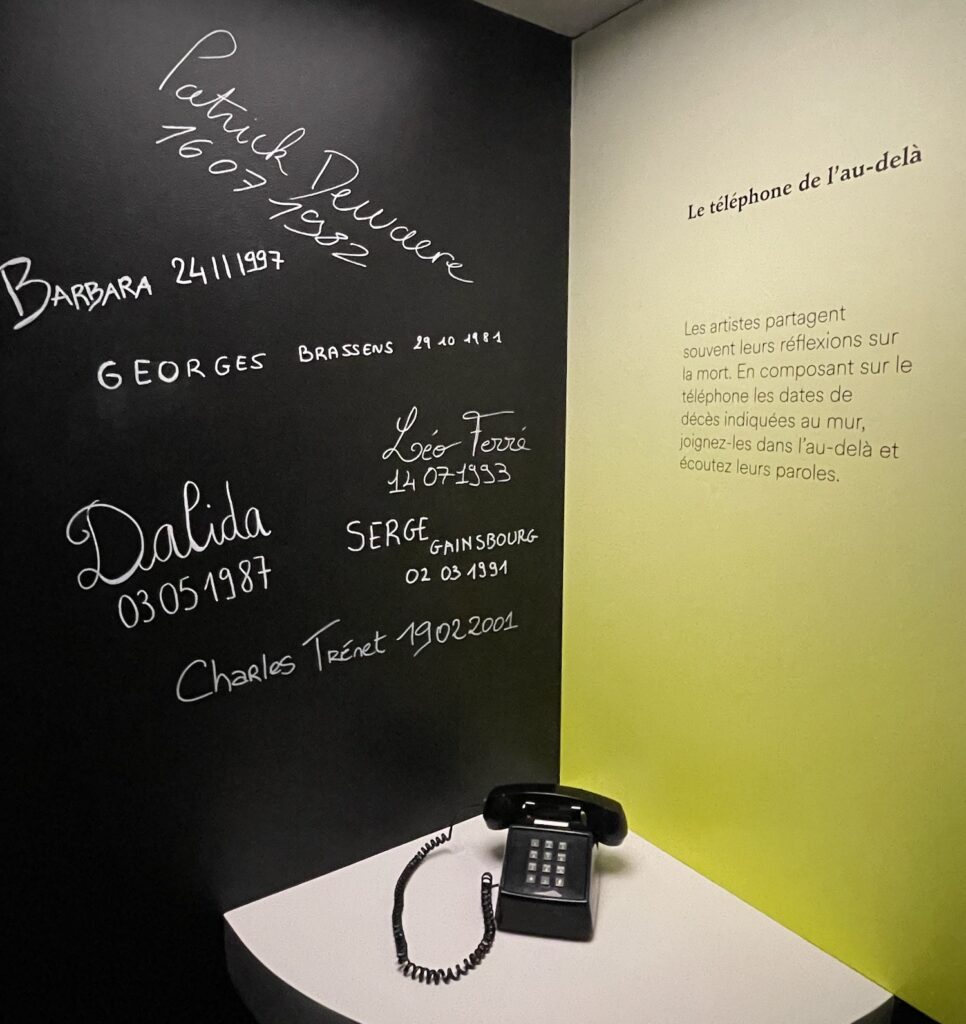 Patrick Dewaere
16 07 1982
BARBARA 24 11 1997
GEORGES BRASSENS 29 10 1981
Léo Ferré
14 07 1993
Dalida
03 05 1987
SERGE GAINSBOURG
02 03 1991
Charles Trénet 19 02 2001
Le téléphone de l'au-delà
Les artistes partagent
souvent leurs réflexions sur
la mort. En composant sur le
téléphone les dates de
décès indiquées au mur,
joignez-les dans l'au-delà et
écoutez leurs paroles.